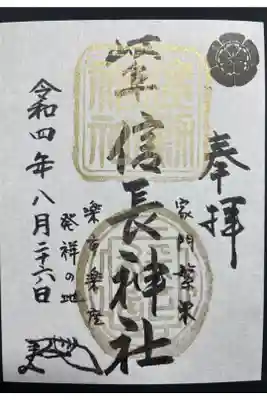 奉拝
家門繁栄
岐阜信長神社
楽市楽座
発祥の地
令和四年八月二十六日